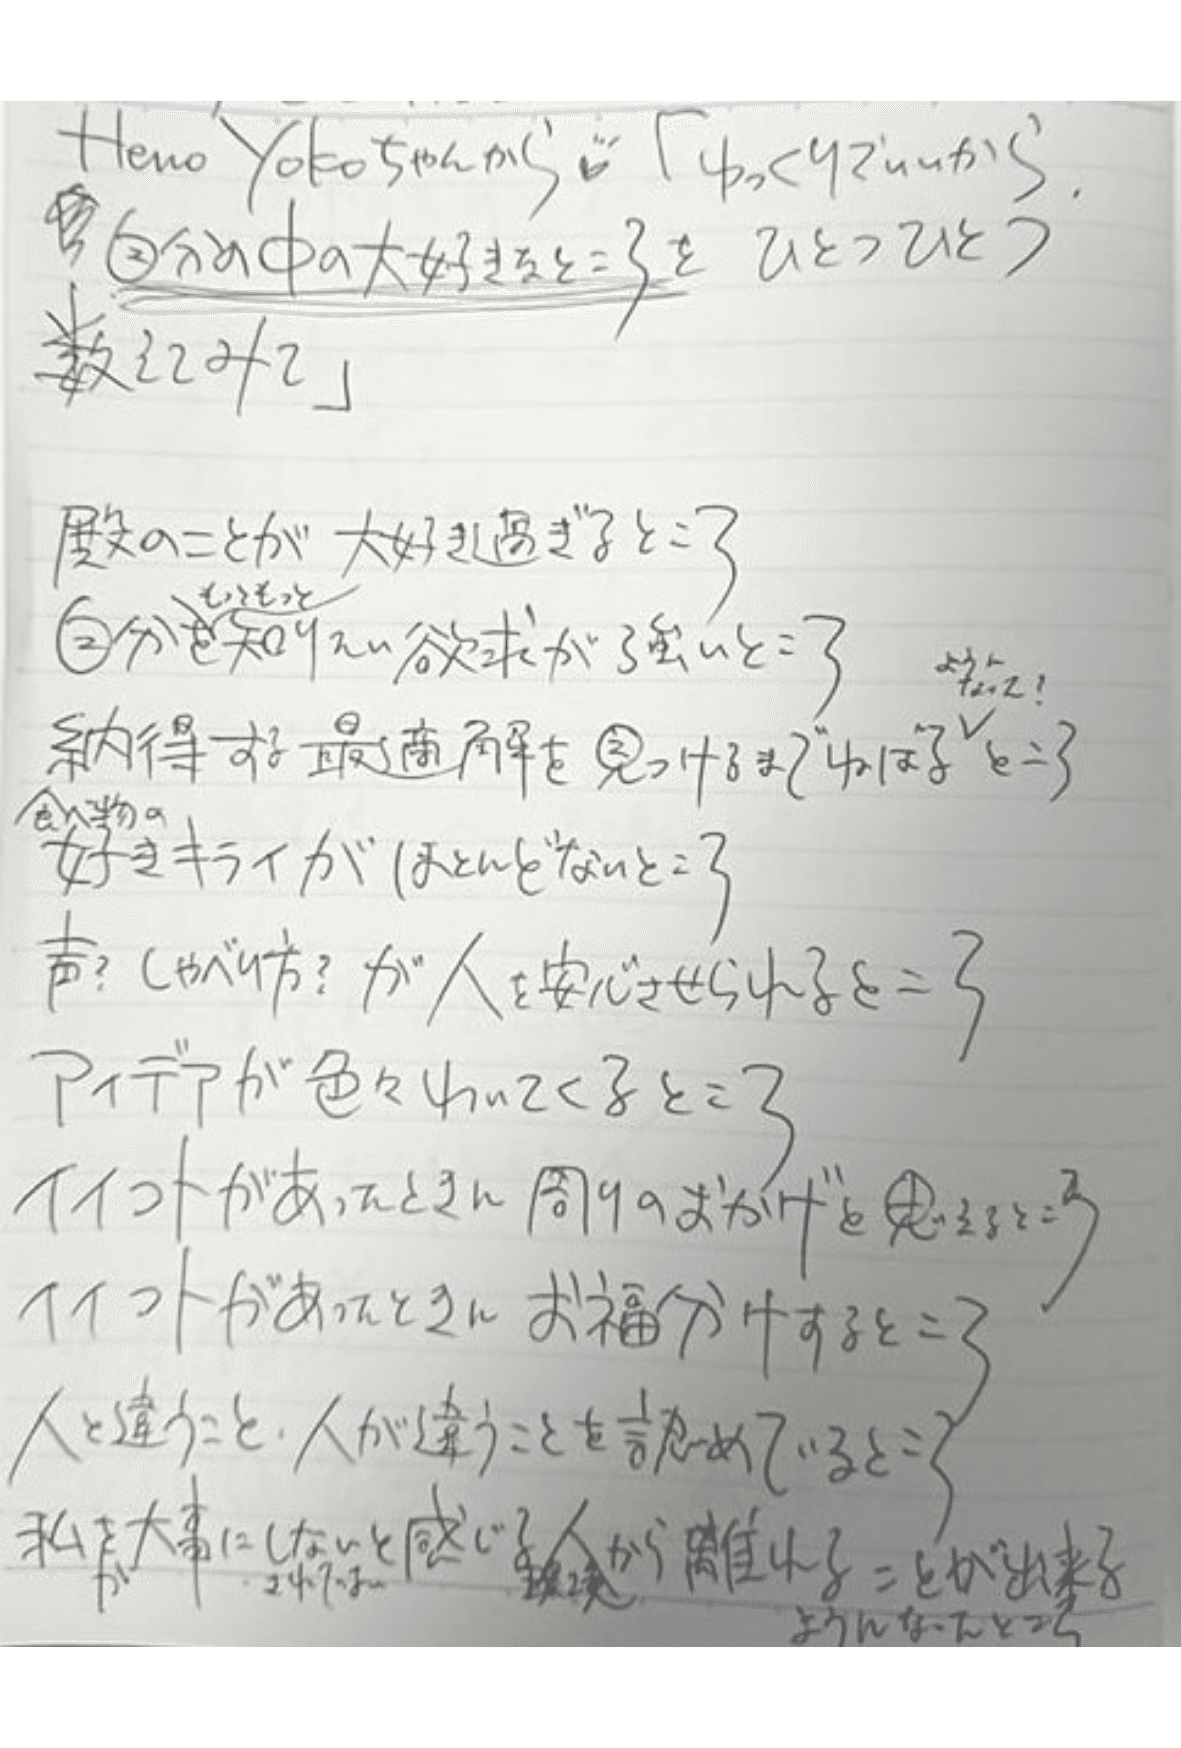 Hemo Yokoちゃんから 「ゆっくりでいいから、
自分の中の大好きなところを ひとつひとつ
数えてみて」
殿のことが 大好き過ぎるところ
もっともっと
自分を知りたい欲求が強いところ
ように
なって?
納得する最適解を見つけるまでねばるところ
食べ物の
好きキライがほとんどないところ
声?しゃべり方?が人を安心させられるところ
アイデアが色々わいてくるところ
イイコトがあったときに 周りのおかげと思えるところ
イイコトがあったときに お福分けするところ
人と違うこと、人が違うことを認めているところ
私を大事にしないと感じる人から離れることが出来る
が されてない
ようになったところ